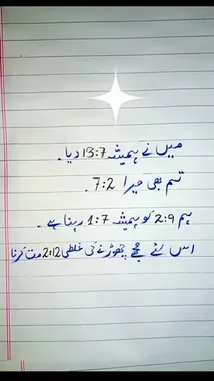 میں نے ہمیشہ 13:7 دیا۔
تم بھی میرا 7:2 .
ہم 2:9 کو ہمیشہ 1:7 رہنا ہے۔
اس لئے مجھے چھوڑنے کی غلطی 2:12 مت کرنا